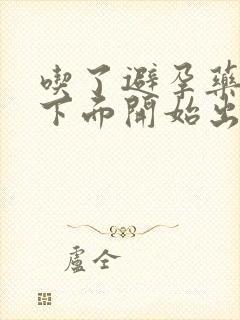 喫了避孕藥
下面開始出
盧仝